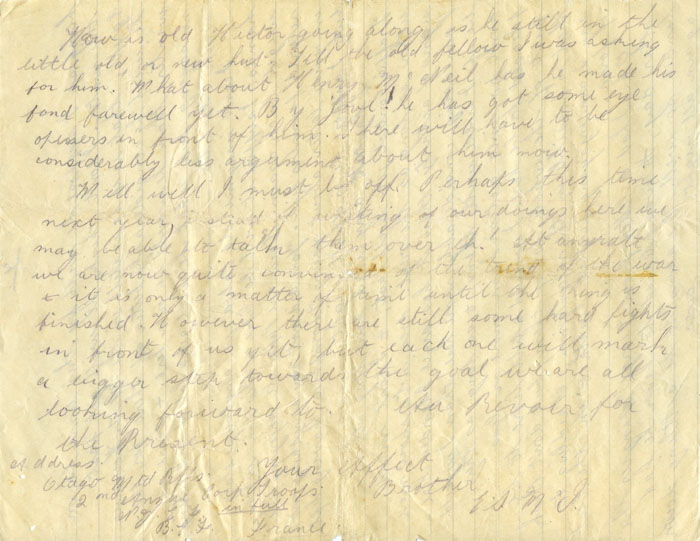 How is old Hector going along, is he still in the
little old or new hut. Tell the old fellow I was asking
for him. What about Henry McNeil has he made his
fond farewell yet. By Jove! he has got some eye
openers in front of him. There will have to be
considerably less argument about him now.
Well well I must be off. Perhaps this time
next year, instead of writing of our doings here we
may be able to talk them over Eh! At anyrate
we are now quite convinced of the trend of the war
& it is only a matter of time until the thing is
finished. However there are still some hard fights
in front of us yet, but each one will mark
a bigger step towards the goal we are all
looking forward to. Au Revoir for
the Present.
Your affect
Brother
address.
Otago Mtd Rfs.
2nd Anzac Corp Troops.
in full
B.E.F. France.